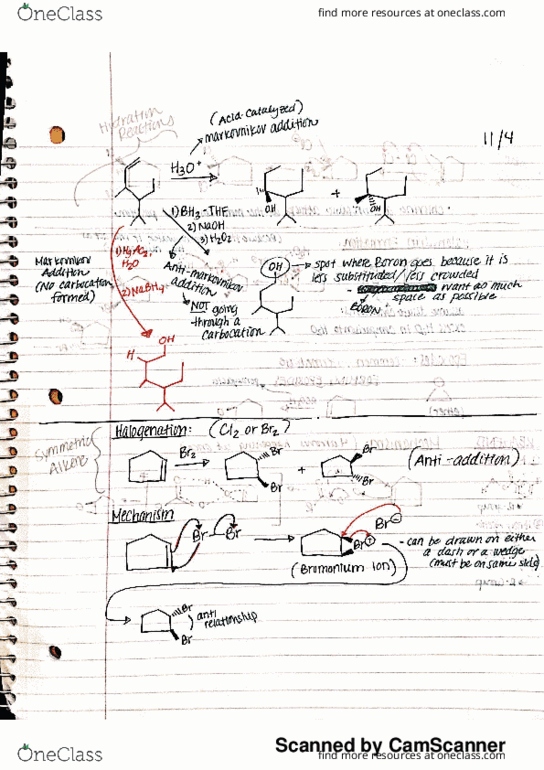 OneClass
find more resources at oneclass.com
Hydration Reactions
(Acid-catalyzed)
markovnikov addition
11/4
H3O+
+
OH
OH
1) BH3·THF
2) NaOH
3) H2O2
Markovnikov
Addition
(No carbocation
formed)
H2O
2) NaBH4
Anti-markovnikov
addition
NOT going
through a
carbocation
OH
spot where Boron goes because it is
less substituted/less crowded
want as much
space as possible
BORON
OH
H
Halogenation: (Cl2 or Br2)
Symmetric
Alkene
Br2
Br
Br
+
Br
Br
(Anti-addition)
Mechanism
Br
Br
Br
Br
(Bromonium ion)
- can be drawn on either
a dash or a wedge
(must be on same side)
Br
Br
anti
relationship
Scanned by CamScanner
OneClass
find more resources at oneclass.com